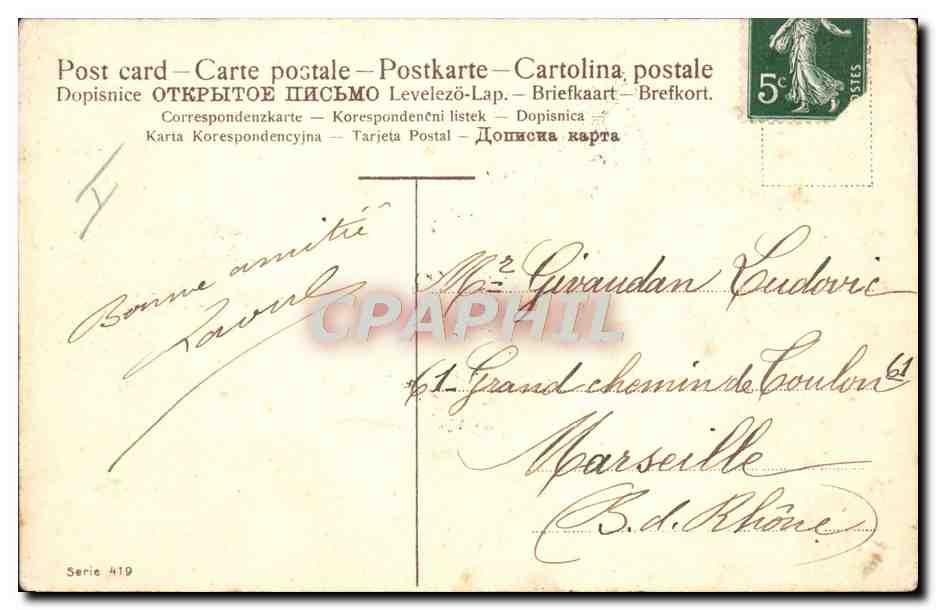 Post card – Carte postale – Postkarte – Cartolina postale
Dopisnice ОТКРЫТОЕ ПИСЬМО Levelező-Lap. – Briefkaart – Brefkort.
Correspondenzkarte – Korespondenčni listek – Dopisnica –
Karta Korespondencyjna – Tarjeta Postal – Дописна карта
5c
POSTES
I
Bonne amitié
Mr Givaudan Ludovic
61 - Grand chemin de Toulon 61
Marseille
(B. d. Rhône)
CPAPHIL
Serie 419